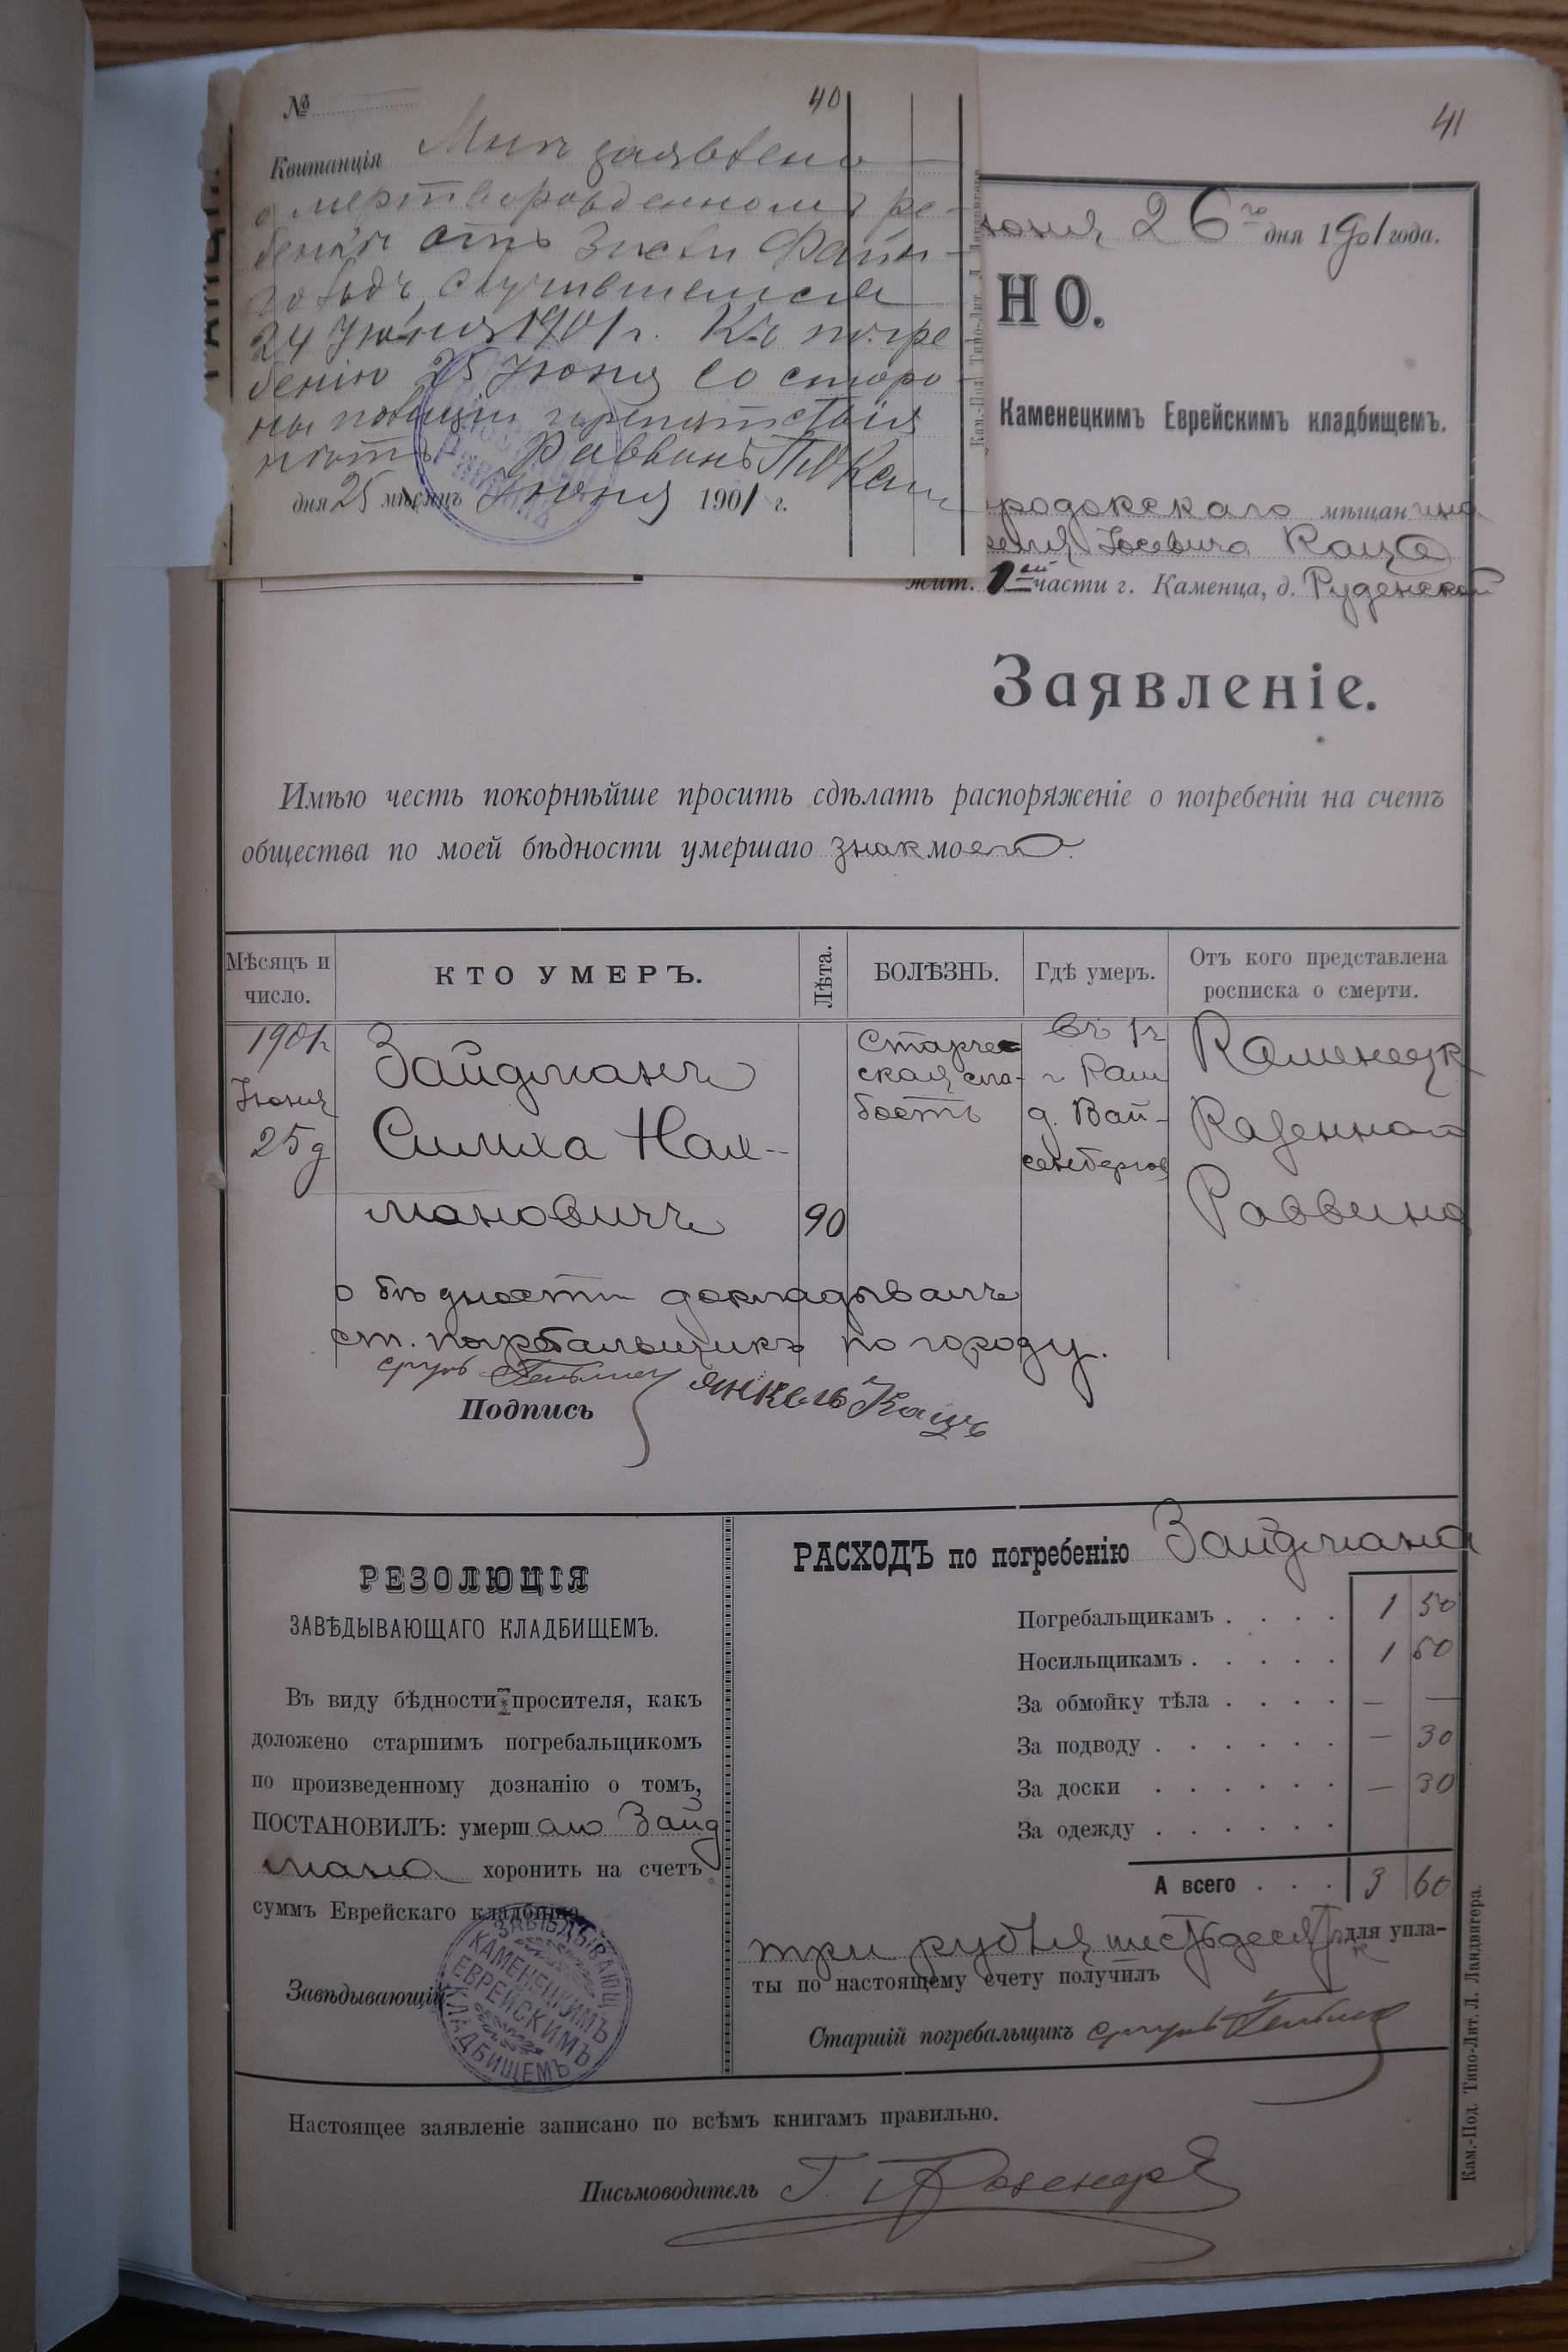 № 40
Квитанція Мнѣ заявлено
о мертворожденномъ ре-
бенкѣ отъ Зиси Файн-
гольдъ, случившемся
24 Іюня 1901 г. Къ погре
бенію 25 Іюня со сторо
ны полиціи препятствія
нѣтъ Раввинъ
дня 25 мѣсяцъ Іюня 1901 г.
41
юня 26го дня 1901 года.
НО.
Каменецкимъ Еврейскимъ кладбищемъ.
Кам.-Под. Типо-Лит. Л. Ландвигера.
родокскаго мѣщанина
Іосевича Каца
жит. 1ой части г. Каменца, д. Руденской
Заявленіе.
Имѣю честь покорнѣйше просить сдѣлать распоряженіе о погребеніи на счетъ
общества по моей бѣдности умершаго знакомого.
Мѣсяцъ и число.
КТО УМЕРЪ.
Лѣта.
БОЛѢЗНЬ.
Гдѣ умеръ.
Отъ кого представлена росписка о смерти.
1901 г.
Іюня
25 д
Зайдманъ
Симха Нах-
мановичъ
90
Старче-
ская сла-
бость
въ
г. Кам
д. Вай-
сенбергов
Каменецк
Казеннаго
Раввина
о бѣдности докладывалъ
ст. погребальщикъ по городу.
Подпись
Янкель Кацъ
РЕЗОЛЮЦІЯ
ЗАВѢДЫВАЮЩАГО КЛАДБИЩЕМЪ.
Въ виду бѣдности просителя, какъ
доложено старшимъ погребальщикомъ
по произведенному дознанію о томъ,
ПОСТАНОВИЛЪ: умершаго Зайд
мана хоронить на счетъ
суммъ Еврейскаго кладбища.
Завѣдывающій
ЗАВѢДЫВАЮЩ.
КАМЕНЕЦКИМЪ
ЕВРЕЙСКИМЪ
КЛАДБИЩЕМЪ
РАСХОДЪ по погребенію Зайдмана
Погребальщикамъ . . . . 1 50
Носильщикамъ . . . . . 1 50
За обмойку тѣла . . . . — —
За подводу . . . . . . — 30
За доски . . . . . . — 30
За одежду . . . . . .
А всего . . . 3 60
три рубля шестьдесят к для упла-
ты по настоящему счету получилъ
Старшій погребальщикъ
Настоящее заявленіе записано по всѣмъ книгамъ правильно.
Письмоводитель
Кам.-Под. Типо-Лит. Л. Ландвигера.